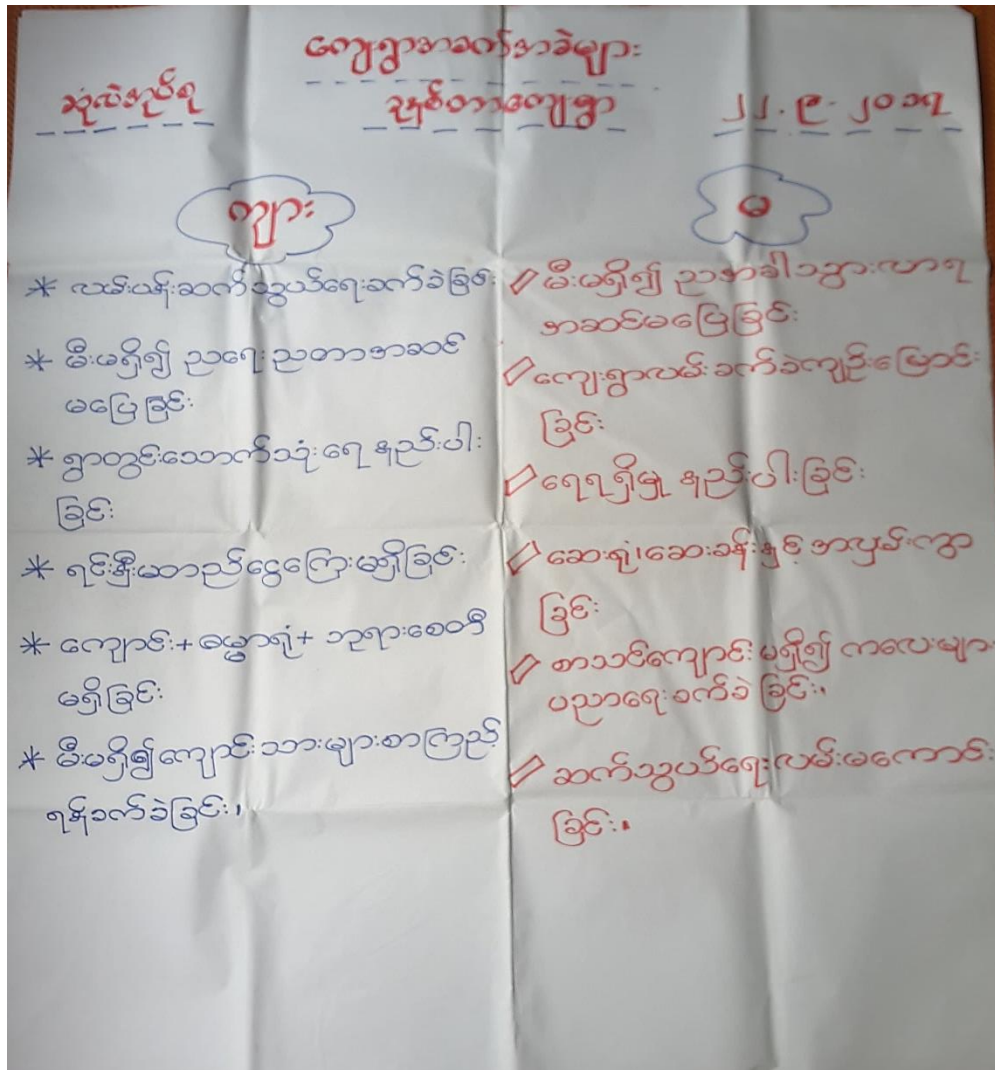 ကျေးရွာအခက်အခဲများ
ဆုံလဲအုပ်ရ ဒုနစ်တာကျေးရွာ ၂၂.၉.၂၀၁၇
ကျား
မ
* လမ်းပန်းဆက်သွယ်ရေးခက်ခဲခြင်း
* မီးမရှိ၍ ညရေးညတာအဆင်
မပြေခြင်း
* ရွာတွင်းသောက်သုံးရေ နည်းပါး
ခြင်း
* ရင်းနှီးမတည်ငွေကြေးမရှိခြင်း
* ကျောင်း+ဓမ္မာရုံ+ဘုရားစေတီ
မရှိခြင်း
* မီးမရှိ၍ကျောင်းသားများစာကြည့်
ရန်ခက်ခဲခြင်း၊
မီးမရှိ၍ ညအခါသွားလာရ
အဆင်မပြေခြင်း
ကျေးရွာလမ်းခက်ခဲကျဉ်းမြောင်း
ခြင်း
ရေရရှိမှု နည်းပါးခြင်း
ဆေးရုံ၊ဆေးခန်းနှင့် အလှမ်းကွာ
ခြင်း
စာသင်ကျောင်းမရှိ၍ ကလေးများ
ပညာရေးခက်ခဲခြင်း၊
ဆက်သွယ်ရေးလမ်းမကောင်း
ခြင်း၊